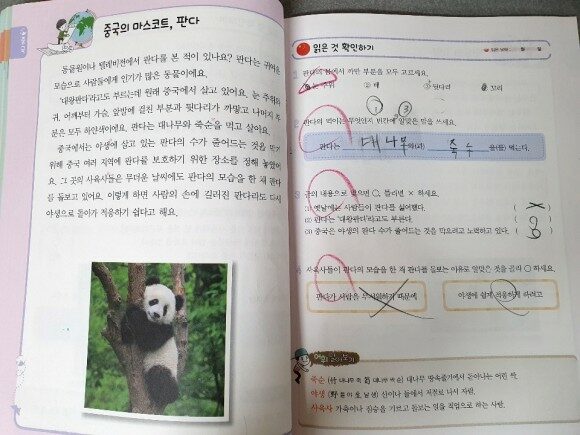 중국의 마스코트, 판다
동물원이나 텔레비전에서 판다를 본 적이 있나요? 판다는 귀여운
모습으로 사람들에게 인기가 많은 동물이에요.
'대왕판다'라고도 부르는데 원래 중국에서 살고 있어요. 눈 주위와
귀, 어깨부터 가슴, 앞발에 걸친 부분과 뒷다리가 까맣고 나머지 부
분은 모두 하얀색이에요. 판다는 대나무와 죽순을 먹고 살아요.
중국에서는 야생에 살고 있는 판다의 수가 줄어드는 것을 막기
위해 중국 여러 지역에 판다를 보호하기 위한 장소를 정해 놓았어
요. 그 곳의 사육사들은 무더운 날씨에도 판다의 모습을 한 채 판다
를 돌보고 있어요. 이렇게 하면 사람의 손에 길러진 판다라도 다시
야생으로 돌아가 적응하기 쉽다고 해요.
읽은 것 확인하기
판다의 몸에서 까만 부분을 모두 고르세요.
눈 주위 ② 배 ③ 뒷다리 ④ 꼬리
① ③
판다의 먹이는 무엇인지 빈칸에 알맞은 말을 쓰세요.
판다는 대나무 와(과) 죽수 을(를) 먹는다.
글의 내용으로 맞으면 ○, 틀리면 × 하세요.
(1) 옛날에는 사람들이 판다를 싫어했다. ( X )
(2) 판다는 '대왕판다'라고도 부른다.
(3) 중국은 야생의 판다 수가 줄어드는 것을 막으려고 노력하고 있다.
사육사들이 판다의 모습을 한 채 판다를 돌보는 이유로 알맞은 것을 골라 ○ 하세요.
판다가 사람을 무서워하기 때문에 야생에 쉽게 적응하게 하려고
죽순 대나무 땅속줄기에서 돋아나는 어린 싹.
야생 산이나 들에서 저절로 나서 자람.
사육사 가축이나 짐승을 기르고 돌보는 일을 직업으로 하는 사람.